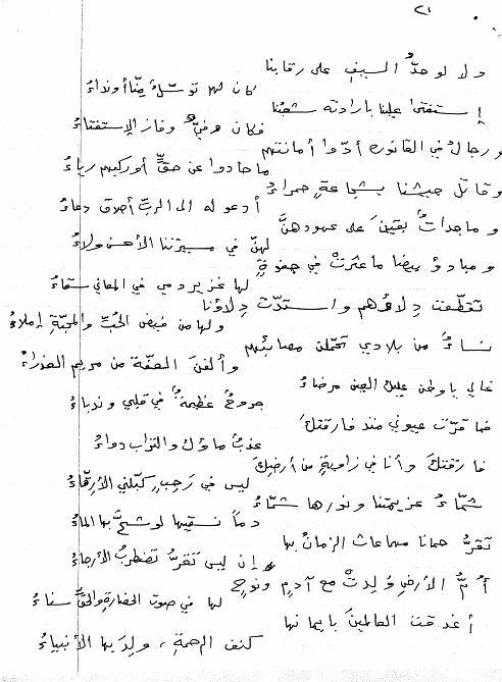 ٢١
ولا لو حدُّ السيفِ على رقابنا
كان لهم توسّلٌ منّا أو نداءُ
إستفتى علينا بارادته شعبُنا
فكان وفيٌّ وفاز الإستفتاءُ
ورجالٌ في القانون أدّوا أمانتهم
ما حادوا عن حقٍّ أو ركبهم رياءُ
وقاتل جيشنا بشجاعةٍ حمراءُ
أدعو له الى الربّ أصدق دعاءُ
وماجداتُ بقينَ على عهودهنَّ
لهنّ في مسيرتنا الأحسن ولاءُ
ومبادؤ بيضا ما عثرتْ في حفرةٍ
لها غزير دمي في المعاني سقاءُ
تقطّعت دلاؤهم واستدّت دلاؤنا
ولها من فيض الحُبّ والمحبّةِ إملاءُ
نساءٌ من بلادي تحمّلن مصائبهم
وألفنَ العفّة من مريم العذراءُ
غالي ياوطن عليك العين مرضاءُ
جروحٌ عظيمةٌ في قلبي وندباءُ
فما قرّت عيوني منذ فارقتكَ
عذبٌ ماؤك والتراب دواءُ
فارقتكَ وأنا في زاويةٍ من أرضِكَ
ليس في رَحبٍ كبّلني الأرقّاءُ
شمّاءُ عزيمتنا ونورها شمّاءُ
دماً نسقيها لو شحَّ بها الماءُ
تقرُّ حمانا مهما عات الزمانُ بها
إن ليس تقرُّ تضطربُ الأرجاءُ
أمُّ الأرضِ وُلِدتْ مع آدمٍ ونوحٍ
لها في صوت الحضارةِ والحقِّ سناءُ
أغدقت العالمينَ بايمانها
كنف الرحمةِ، ولِدَ بها الأنبياءُ